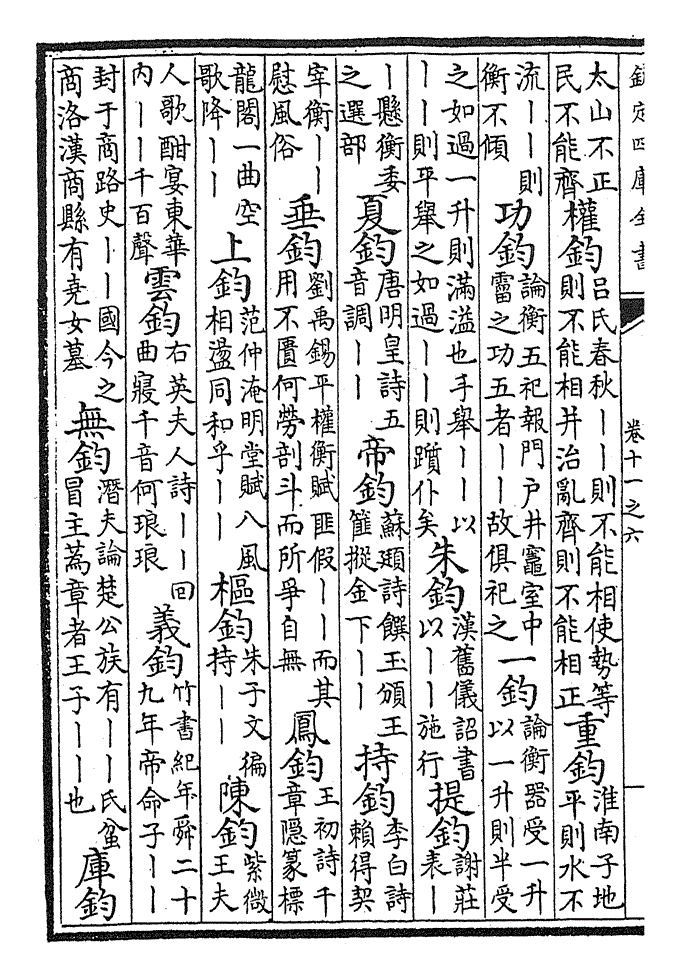 欽定四庫全書 卷十一之六
太山不正民不能齊 權鈞 呂氏春秋丨丨則不能相使勢等則不能相并治亂齊則不能相正 重鈞 淮南子地平則水不
流丨丨則衡不傾 功鈞 論衡五祀報門戶井竈室中霤之功五者丨丨故俱祀之 一鈞 論衡器受一升以一升則半受
之如過一升則滿溢也手舉丨丨以丨丨則平舉之如過丨丨則躓仆矣 朱鈞 漢舊儀詔書以丨丨施行 提鈞 謝莊表丨
丨懸衡委之選部 夏鈞 唐明皇詩五音調丨丨 帝鈞 蘇頲詩饌玉頒王篚摐金下丨丨 持鈞 李白詩賴得契
宰衡丨丨慰風俗 垂鈞 劉禹錫平權衡賦匪假丨丨而其用不匱何勞剖斗而所爭自無 鳳鈞 王初詩千章隱篆標
龍閣一曲空歌降丨丨 上鈞 范仲淹明堂賦八風相盪同和乎丨丨 樞鈞 朱子文徧持丨丨 陳鈞 紫微王夫
人歌酣宴東華内丨丨千百聲 雲鈞 右英夫人詩丨丨回曲寢千音何琅琅 義鈞 竹書紀年舜二十九年帝命子丨丨
封于商路史丨丨國今之商洛漢商縣有堯女墓 無鈞 潛夫論楚公族有丨丨氏蚠冒主蒍章者王子丨丨也 庫鈞